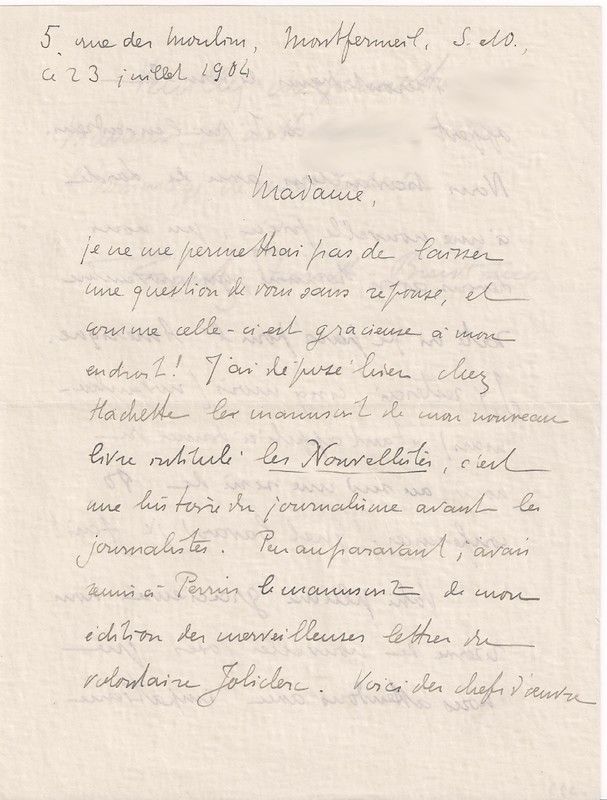 5, rue des Moulins, Montfermeil, S. et O.,
ce 23 juillet 1904
Madame,
je ne me permettrai pas de laisser
une question de vous sans réponse, et
comme celle-ci est gracieuse à mon
endroit! J'ai déposé hier chez
Hachette le manuscrit de mon nouveau
livre intitulé les Nouvellistes, c'est
une histoire du journalisme avant les
journalistes. Peu auparavant j'avais
remis à Perrin le manuscrit de mon
édition des merveilleuses lettres du
volontaire Joliclerc. Voici des chefs d'œuvre